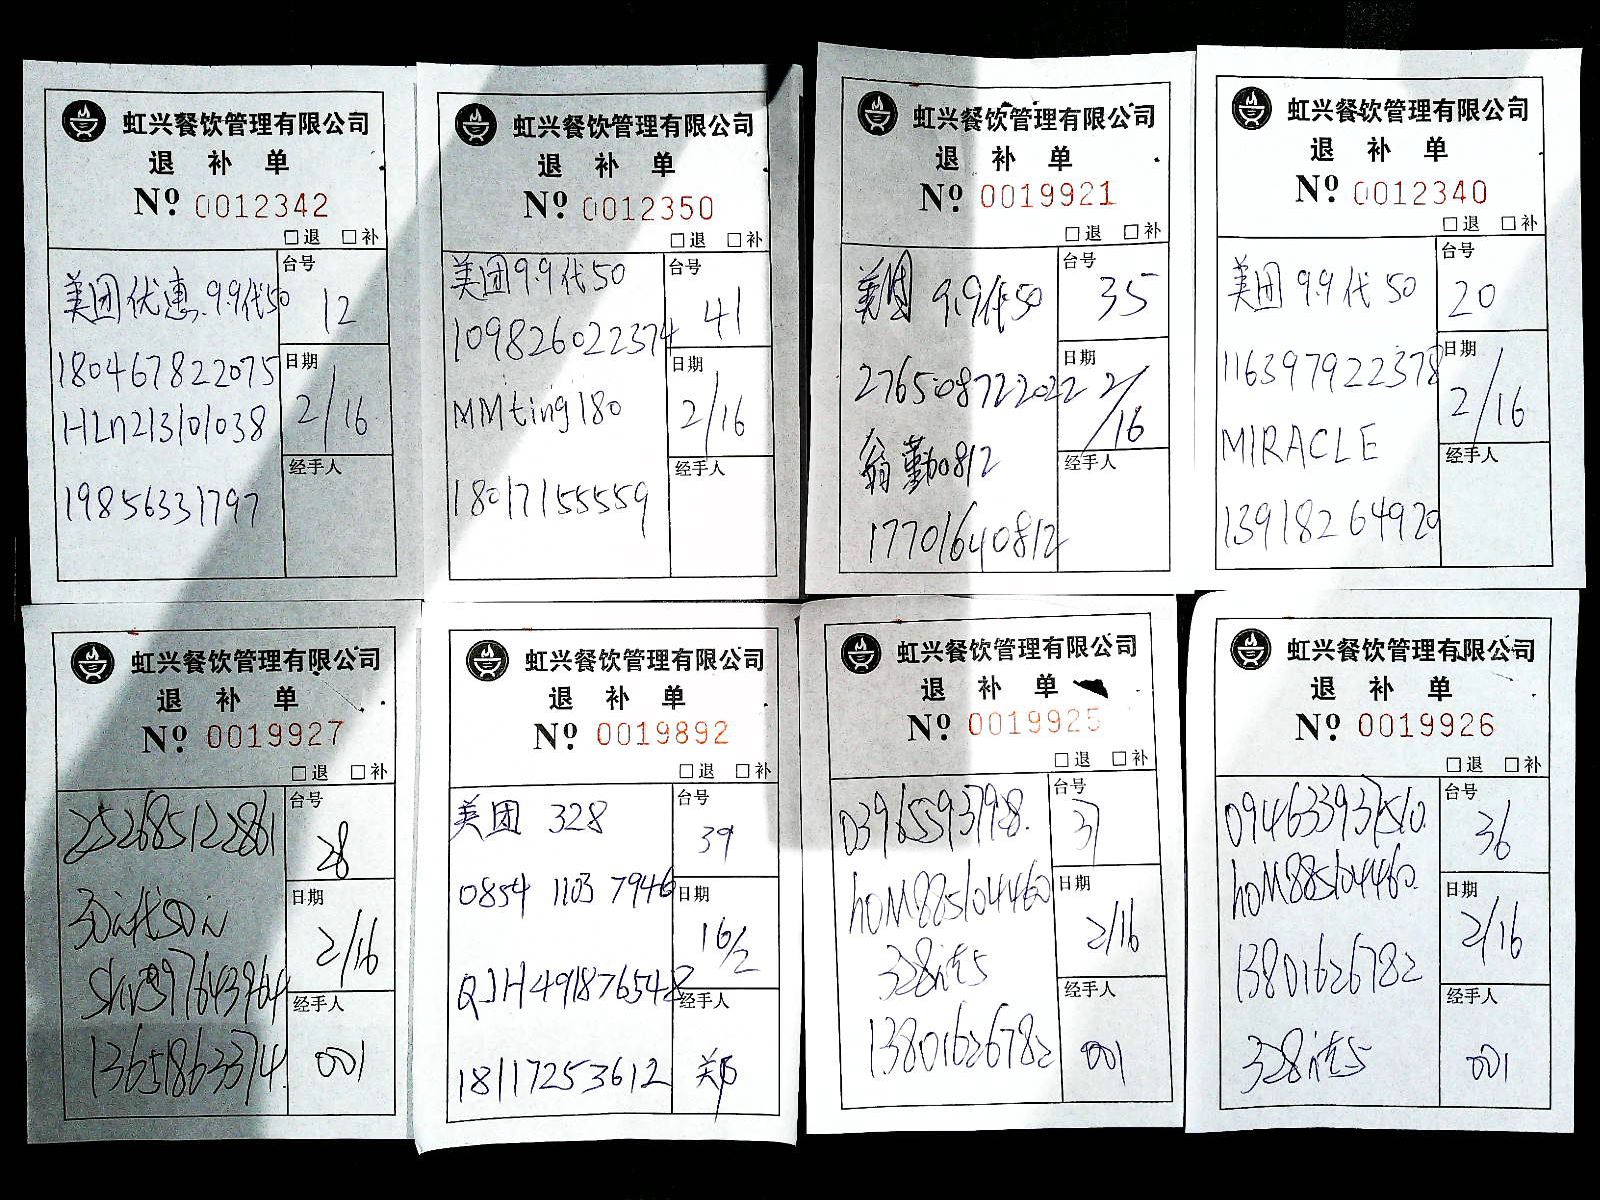 虹兴餐饮管理有限公司
退 补 单
Nº 0012342
□退 □补
美团优惠.9.9代50
台号
12
180467822075
日期
2/16
HLn213101038
经手人
19856331797
虹兴餐饮管理有限公司
退 补 单
Nº 0012350
□退 □补
美团9.9代50
台号
41
109826022374
日期
2/16
MMting180
经手人
18017155559
虹兴餐饮管理有限公司
退 补 单
Nº 0019921
□退 □补
美团 9.9代50
台号
35
276508722022
日期
2/16
翁勤0812
经手人
17701640812
虹兴餐饮管理有限公司
退 补 单
Nº 0012340
□退 □补
美团 9.9代50
台号
20
116397922378
日期
2/16
MIRACLE
经手人
13918264920
虹兴餐饮管理有限公司
退 补 单
Nº 0019927
□退 □补
252685122861
台号
28
日期
2/16
经手人
13651863374
001
虹兴餐饮管理有限公司
退 补 单
Nº 0019892
□退 □补
美团 328
台号
39
0854 1103 7946
日期
16/2
QJH491876548
经手人
18117253612
郑
虹兴餐饮管理有限公司
退 补 单
Nº 0019925
□退 □补
039655937928.
台号
37
hOM885104460
日期
2/16
经手人
13801626782
001
虹兴餐饮管理有限公司
退 补 单
Nº 0019926
□退 □补
094633937510.
台号
36
hOM885104460.
日期
2/16
13801626782
经手人
001